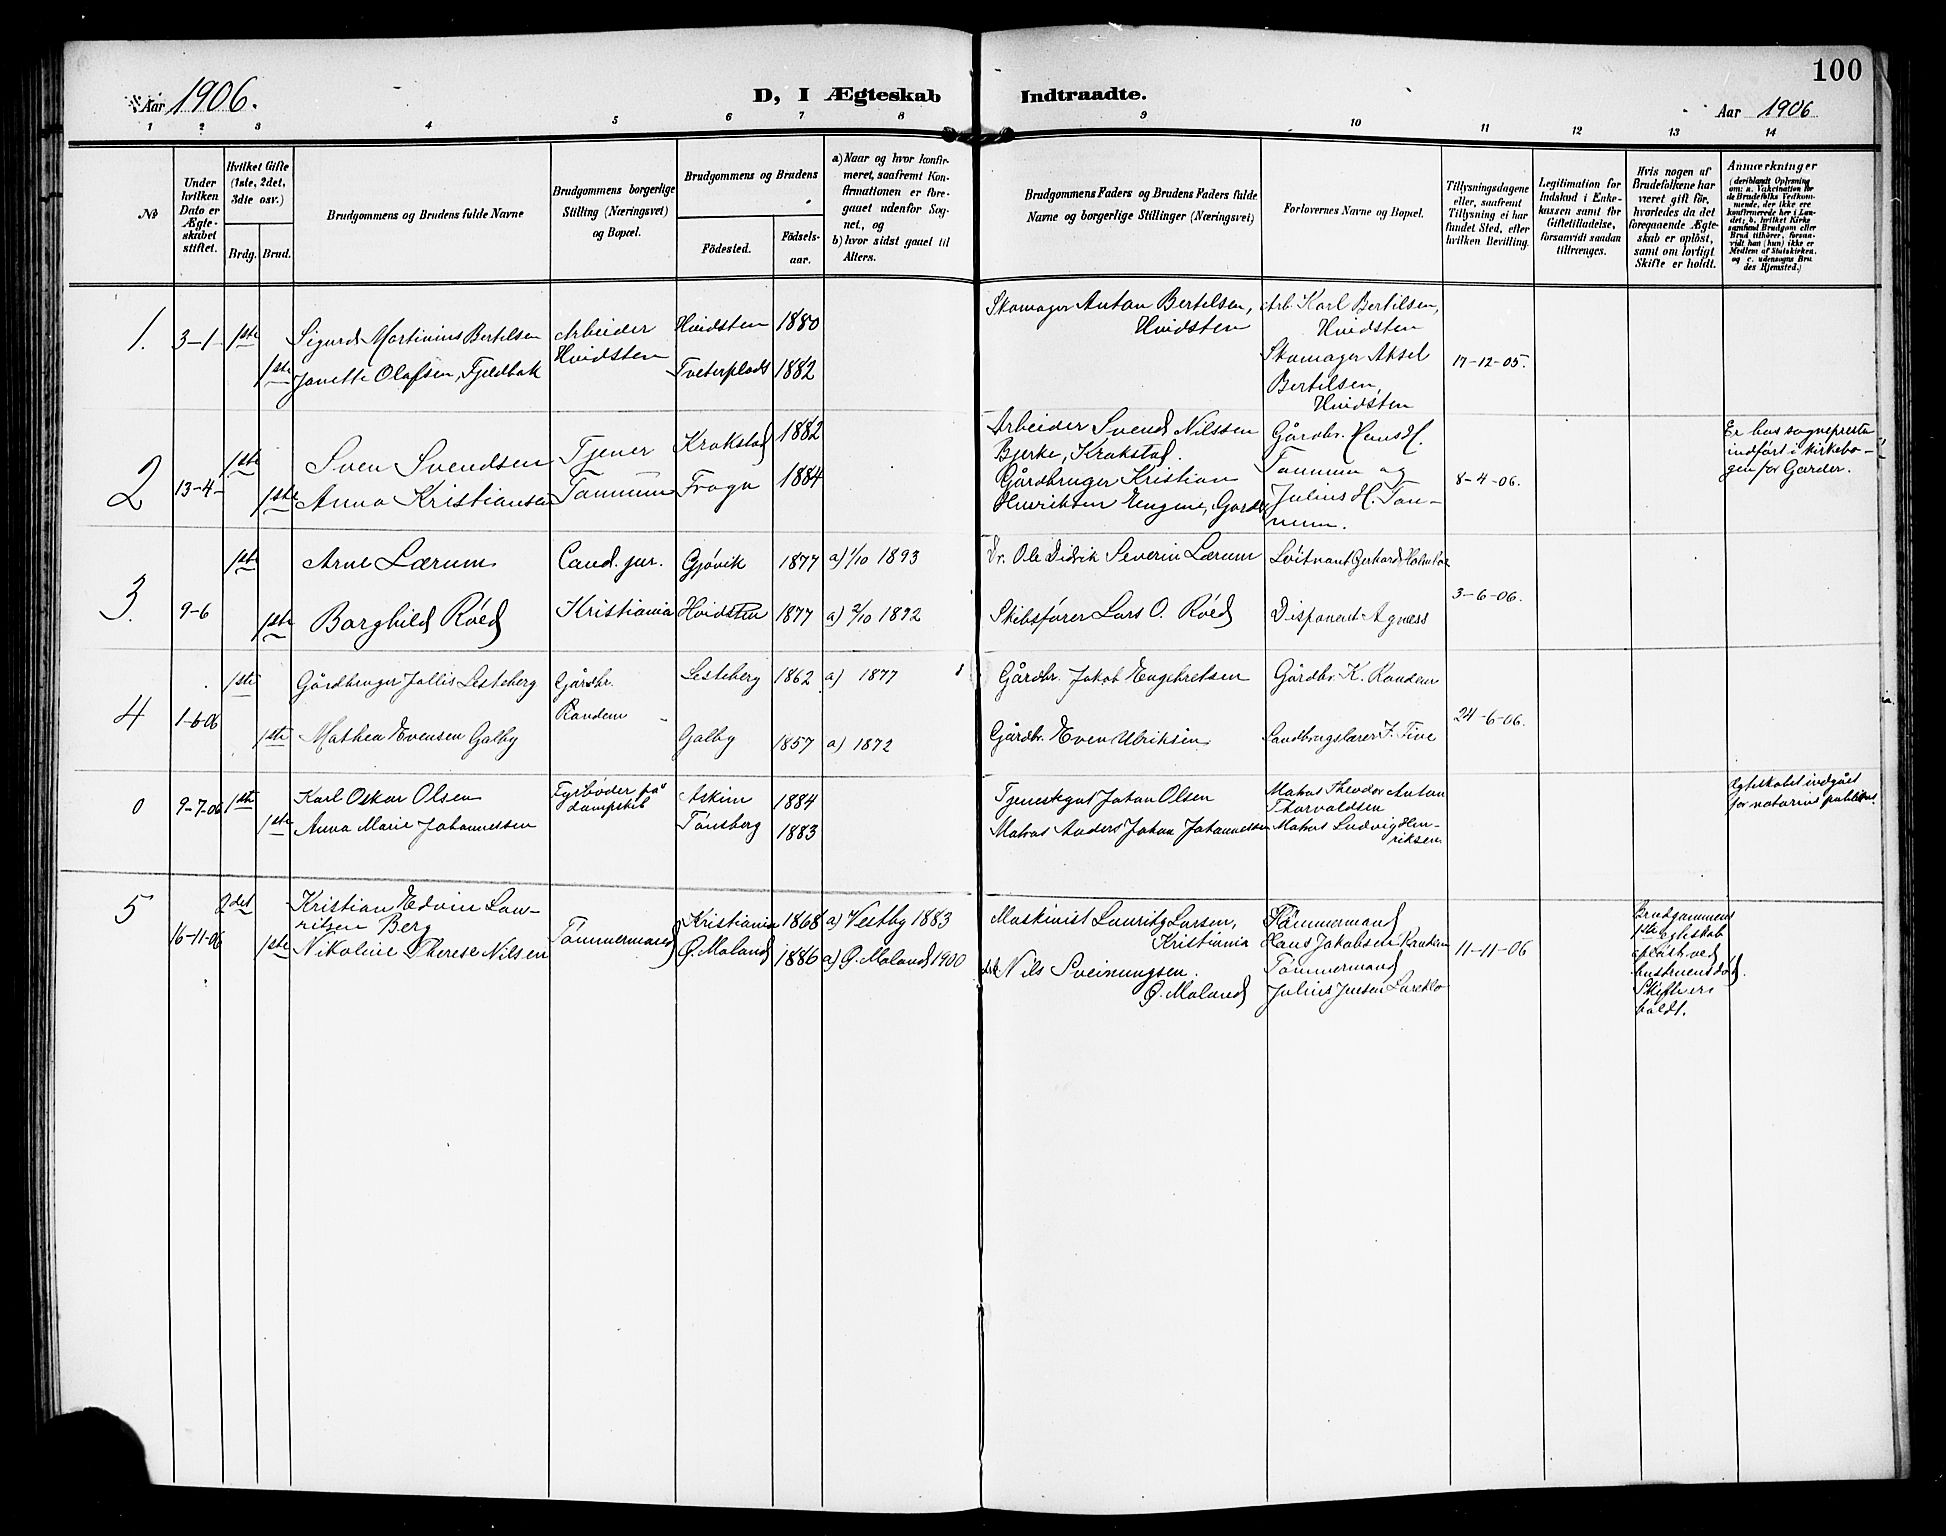 100
Aar 1906.
D, I Ægteskab
Indtraadte.
Aar 1906
1 2 3 4 5 6 7 8 9 10 11 12 13 14
№
Under
hvilken
Dato er
Ægte-
skabet
stiftet.
Hvilket Gifte
(1ste, 2det,
3dte osv.)
Brdg. Brud.
Brudgommens og Brudens fulde Navne
Brudgommens borgerlige
Stilling (Næringsvei)
og Bopæl.
Brudgommens og Brudens
Fødested.
Fødsels-
aar.
a) Naar og hvor konfir-
meret, saafremt Kon-
firmationen er fore-
gaaet udenfor Sog-
net, og
b) hvor sidst gaaet til
Alters.
Brudgommens Faders og Brudens Faders fulde
Navne og borgerlige Stillinger (Næringsvei)
Forlovernes Navne og Bopæl.
Tillysningsdagene
eller, saafremt
Tillysning ei har
fundet Sted, efter
hvilken Bevilling.
Legitimation for
Indskud i Enke-
kassen samt for
Giftetilladelse,
forsaavidt saadan
tiltrænges.
Hvis nogen af
Brudefolkene har
været gift før,
hvorledes da det
foregaaende Ægte-
skab er opløst,
samt om lovligt
Skifte er holdt.
Anmærkninger
(deriblandt Oplysning
om: a. Vakcination for
de Brudefolks Vedkom-
mende, der ikke ere
konfirmerede her i Lan-
det; b. hvilket Kirke
samfund Brudgom eller
Brud tilhører, forsaa-
vidt han (hun) ikke er
Medlem af Statskirken,
og c. udensogns Bru
des Hjemsted.)
1. 3-1 1ste Sigurd Martinius Bertelsen Arbeider Hvidsten 1880
Hvidsten
1ste Janette Olafsen, Fjeldbak Tveterplads 1882
Skomager Anton Bertelsen,
Hvidsten
Arb. Karl Bertilsen,
Hvidsten
Skomager Aksel
Bertelsen,
Hvidsten
17-12-05.
2 13-4- 1ste Sven Svendsen Tjener Krakstad 1882
1ste Anna Kristiansen Tannum Frogn 1884
Arbeider Svend Nilssen
Bjerke, Krakstad.
Gårdbruger Kristian
Henriksen Engene, Garder
Gårdbr. Hans H.
Tannum og
Julius H. Tan-
num.
8-4-06.
Er hos sognepresten
indført i kirkebo-
gen for Garder.
3. 9-6 1ste Arne Lærum Cand. jur. Gjøvik 1877 a) 1/10 1893
1ste Borghild Röed Kristiania Hvidsten 1877 a) 2/10 1892
Dr. Ole Didrik Severin Lærum
Skibsfører Lars O. Röed
Löitnant Gerhard Holmboe
Disponent Agness
3-6-06.
4 1-6-06 1ste Gårdbruger Jallis Lesteberg Gårdbr. Lesteberg 1862 a) 1877
Randem
1ste Mathea Evensen Galby Galby 1857 a) 1872
Gårdbr. Jakob Engebretsen
Gårdbr. Even Ulriksen
Gårdbr. K. Randem
Landbrugslærer J. Five
24-6-06.
0 9-7-06 1ste Karl Oskar Olsen Fyrbøder på Askim 1884
dampskib
1ste Anna Marie Johannessen Tønsberg 1883
Tjenestegut Johan Olsen
Matros Anders Johan Johannessen
Matros Theodor Anton
Thorvaldsen
Matros Ludvig Hen-
riksen
Egteskabet indgået
for notarius publicus.
5 16-11-06 2det Kristian Edvin Lau-
ritsen Berg Kristiania 1868 a) Vestby 1883
1ste Nikoline Therese Nilsen Tømmermand Ø. Moland 1886 a) Ø. Moland 1900
Maskinist Lauritz Larsen,
Kristiania
Nils Sveinungsen.
Ø. Moland
Tømmermand
Hans Jakobsen Randem
Tømmermand
Julius Jensen
11-11-06
Brudgommens
1ste egteskab
opløst ved
hustruens död.
Skifte er
holdt.